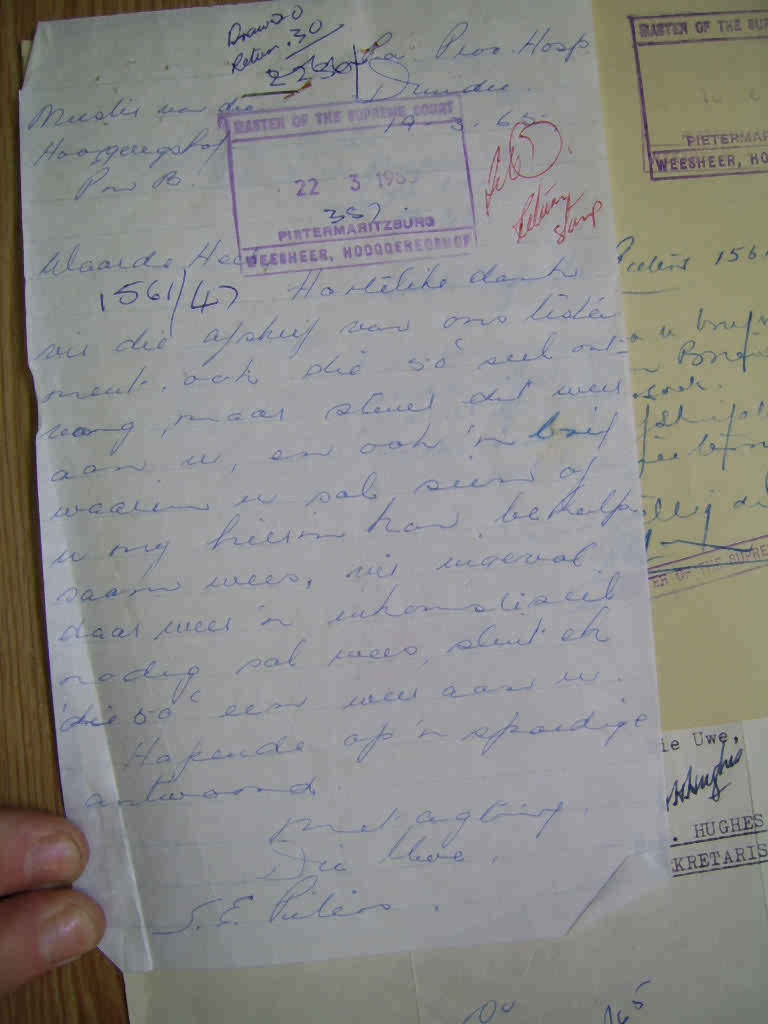 Draw 20
Return .30
Prov. Hosp
Dundee.
Meester van die
19-3-65
Hooggeregshof
MASTER OF THE SUPREME COURT
22 3 196
PIETERMARITZBURG
WEESHEER, HOOGGEREGSHOF
Return
stamp
Waarde Heer
1561/47 Hartelike dank
vir die afskrif van ons testa
ment. ook die 50c seël ont-
vang, maar stuur dit weer
aan u, en ook 'n brief
waarin u sal sien of
u my hierin kan behulp
saam wees, vir ingeval
daar weer 'n inkomsteseel
nodig sal wees, stuur ek
die 50c een weer aan u.
Hopende op 'n spoedige
antwoord.
met agting.
Die Uwe,
S. E. Pieters.
MASTER OF THE SUP
PIETERMAR
WEESHEER, HO
Pieters 156
u brief
ER OF THE SUPRE
ie Uwe,
Hughes
. HUGHES
KRETARIS